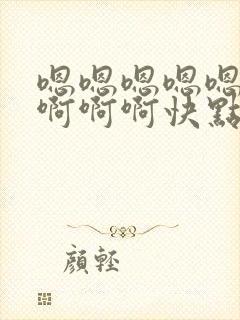 嗯嗯嗯嗯嗯
啊啊啊快點
顏輕